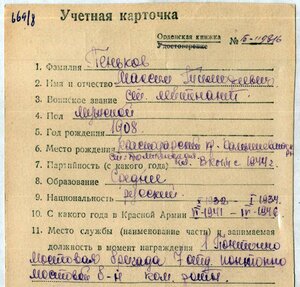 669/8
Учетная карточка
Орденская книжка
Удостоверение № Б-119816
1. Фамилия Теньков
2. Имя и отчество Максим
3. Воинское звание ст. лейтенант
4. Пол мужской
5. Год рождения 1908
6. Место рождения
7. Партийность (с какого года) ВКП(б) с 1944 г.
8. Образование Среднее
9. Национальность русский I 1932 - I 1934
10. С какого года в Красной Армии IV-1941 - IV-1946
11. Место службы (наименование части) и занимаемая
должность в момент награждения 1 Понтонно
мостовая бригада 7 отд. понтонно
мостовой б-н ком. роты.